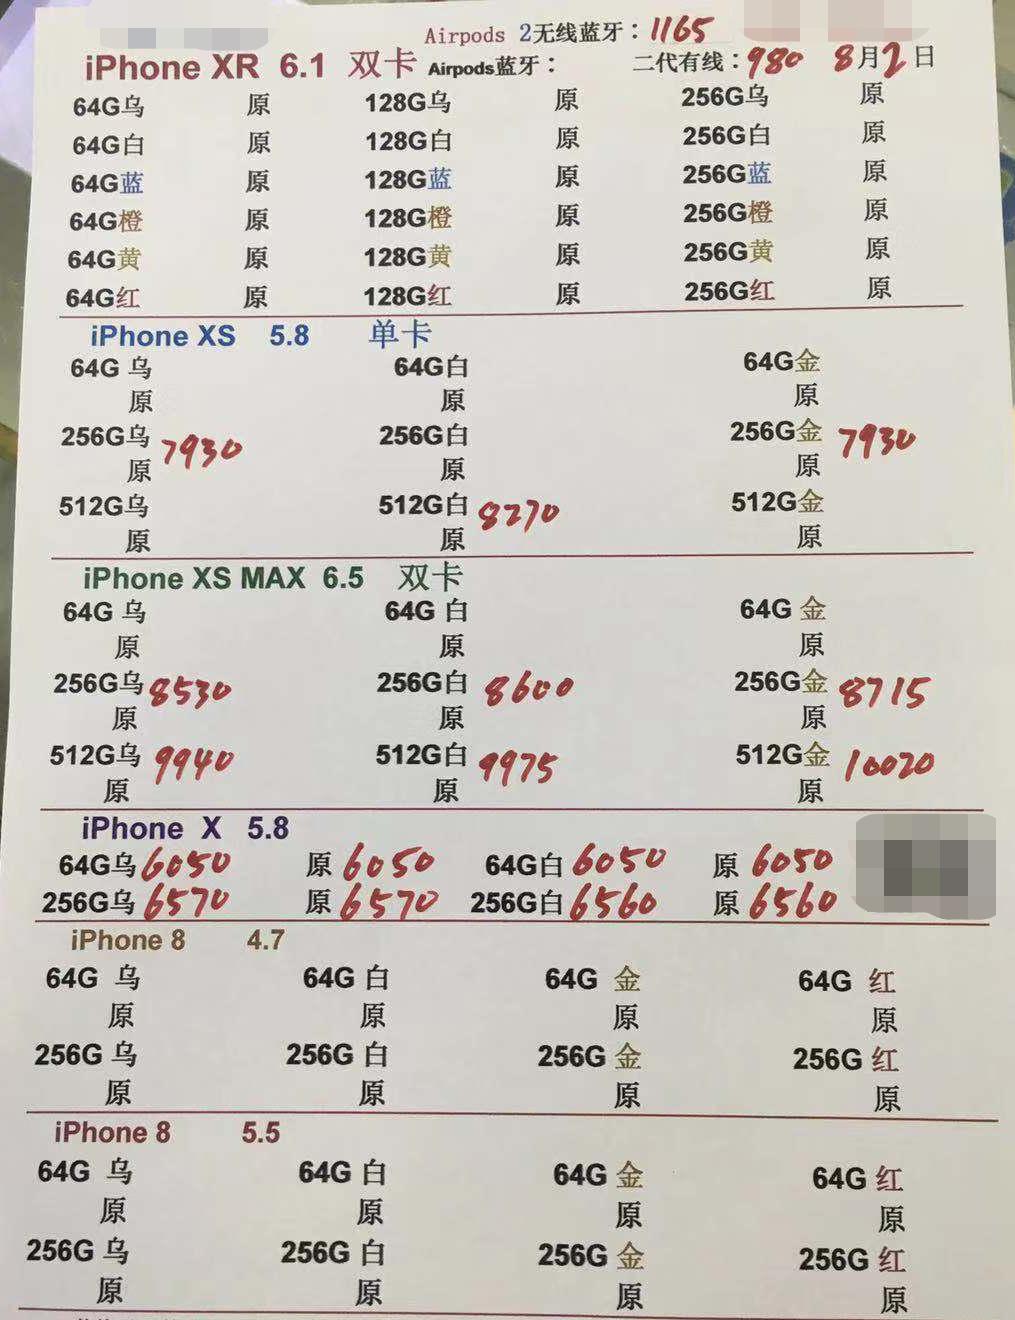 Airpods 2无线蓝牙：1165
iPhone XR 6.1 双卡 Airpods蓝牙： 二代有线：980 8月2日
64G乌 原 128G乌 原 256G乌 原
64G白 原 128G白 原 256G白 原
64G蓝 原 128G蓝 原 256G蓝 原
64G橙 原 128G橙 原 256G橙 原
64G黄 原 128G黄 原 256G黄 原
64G红 原 128G红 原 256G红 原
iPhone XS 5.8 单卡
64G 乌 64G白 64G金
原 原 原
256G乌 7930 256G白 256G金 7930
原 原 原
512G乌 512G白 8270 512G金
原 原 原
iPhone XS MAX 6.5 双卡
64G 乌 64G 白 64G 金
原 原 原
256G乌 8530 256G白 8600 256G金 8715
原 原 原
512G乌 9940 512G白 9975 512G金 10020
原 原 原
iPhone X 5.8
64G乌 6050 原 6050 64G白 6050 原 6050
256G乌 6570 原 6570 256G白 6560 原 6560
iPhone 8 4.7
64G 乌 64G 白 64G 金 64G 红
原 原 原 原
256G 乌 256G 白 256G 金 256G 红
原 原 原 原
iPhone 8 5.5
64G 乌 64G 白 64G 金 64G 红
原 原 原 原
256G 乌 256G 白 256G 金 256G 红
原 原 原 原